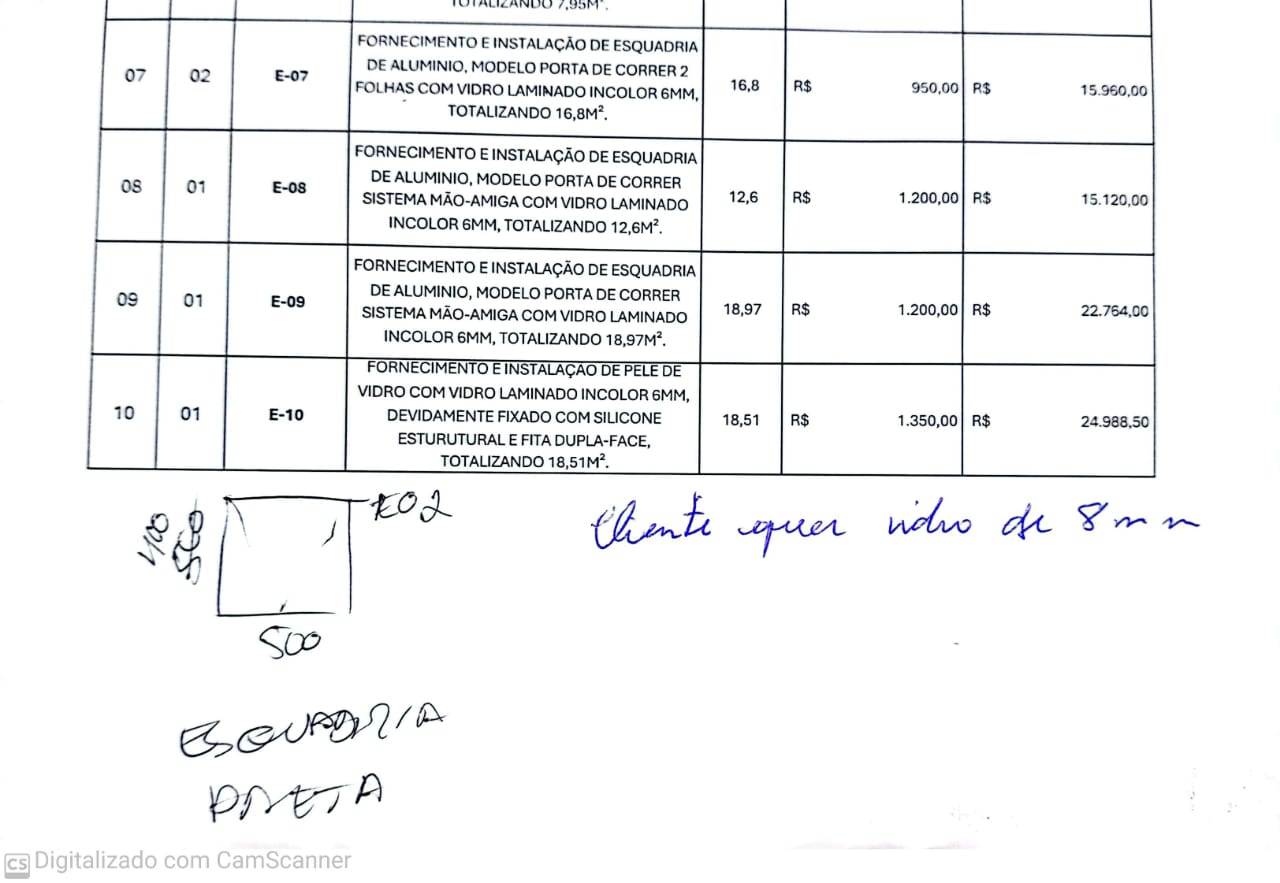 TOTALIZANDO 7,95M².
07 02 E-07 FORNECIMENTO E INSTALAÇÃO DE ESQUADRIA
DE ALUMINIO, MODELO PORTA DE CORRER 2
FOLHAS COM VIDRO LAMINADO INCOLOR 6MM,
TOTALIZANDO 16,8M². 16,8 R$ 950,00 R$ 15.960,00
08 01 E-08 FORNECIMENTO E INSTALAÇÃO DE ESQUADRIA
DE ALUMINIO, MODELO PORTA DE CORRER
SISTEMA MÃO-AMIGA COM VIDRO LAMINADO
INCOLOR 6MM, TOTALIZANDO 12,6M². 12,6 R$ 1.200,00 R$ 15.120,00
09 01 E-09 FORNECIMENTO E INSTALAÇÃO DE ESQUADRIA
DE ALUMINIO, MODELO PORTA DE CORRER
SISTEMA MÃO-AMIGA COM VIDRO LAMINADO
INCOLOR 6MM, TOTALIZANDO 18,97M². 18,97 R$ 1.200,00 R$ 22.764,00
10 01 E-10 FORNECIMENTO E INSTALAÇÃO DE PELE DE
VIDRO COM VIDRO LAMINADO INCOLOR 6MM,
DEVIDAMENTE FIXADO COM SILICONE
ESTURUTURAL E FITA DUPLA-FACE,
TOTALIZANDO 18,51M². 18,51 R$ 1.350,00 R$ 24.988,50
E02
400
500
Cliente quer vidro de 8mm
500
ESQUADRIA
PRETA
CS Digitalizado com CamScanner